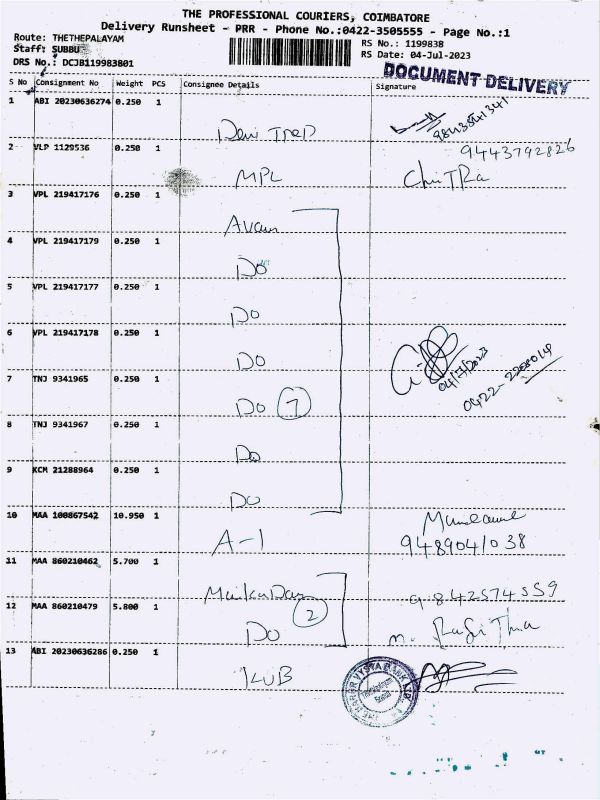 THE PROFESSIONAL COURIERS, COIMBATORE
Delivery Runsheet - PRR - Phone No.:0422-3505555 - Page No.:1
Route: THETHEPALAYAM
RS No.: 1199838
Staff: SUBBU
RS Date: 04-Jul-2023
DRS No.: DCJB119983801
DOCUMENT DELIVERY
S No Consignment No Weight PCS Consignee Details Signature
1 ABI 20230636274 0.250 1
9843841341
2 VLP 1129536 0.250 1
9443792826
MPL ChiTRa
3 VPL 219417176 0.250 1
4 VPL 219417179 0.250 1
Do
5 VPL 219417177 0.250 1
Do
6 VPL 219417178 0.250 1
Do
04/7/2023
7 TNJ 9341965 0.250 1
Do 7
8 TNJ 9341967 0.250 1
Do
9 KCM 21288964 0.250 1
Do
10 MAA 100867542 10.950 1
A-1 9489041038
11 MAA 860210462 5.700 1
9842574559
12 MAA 860210479 5.800 1
2
Do
13 ABI 20230636286 0.250 1
KUB